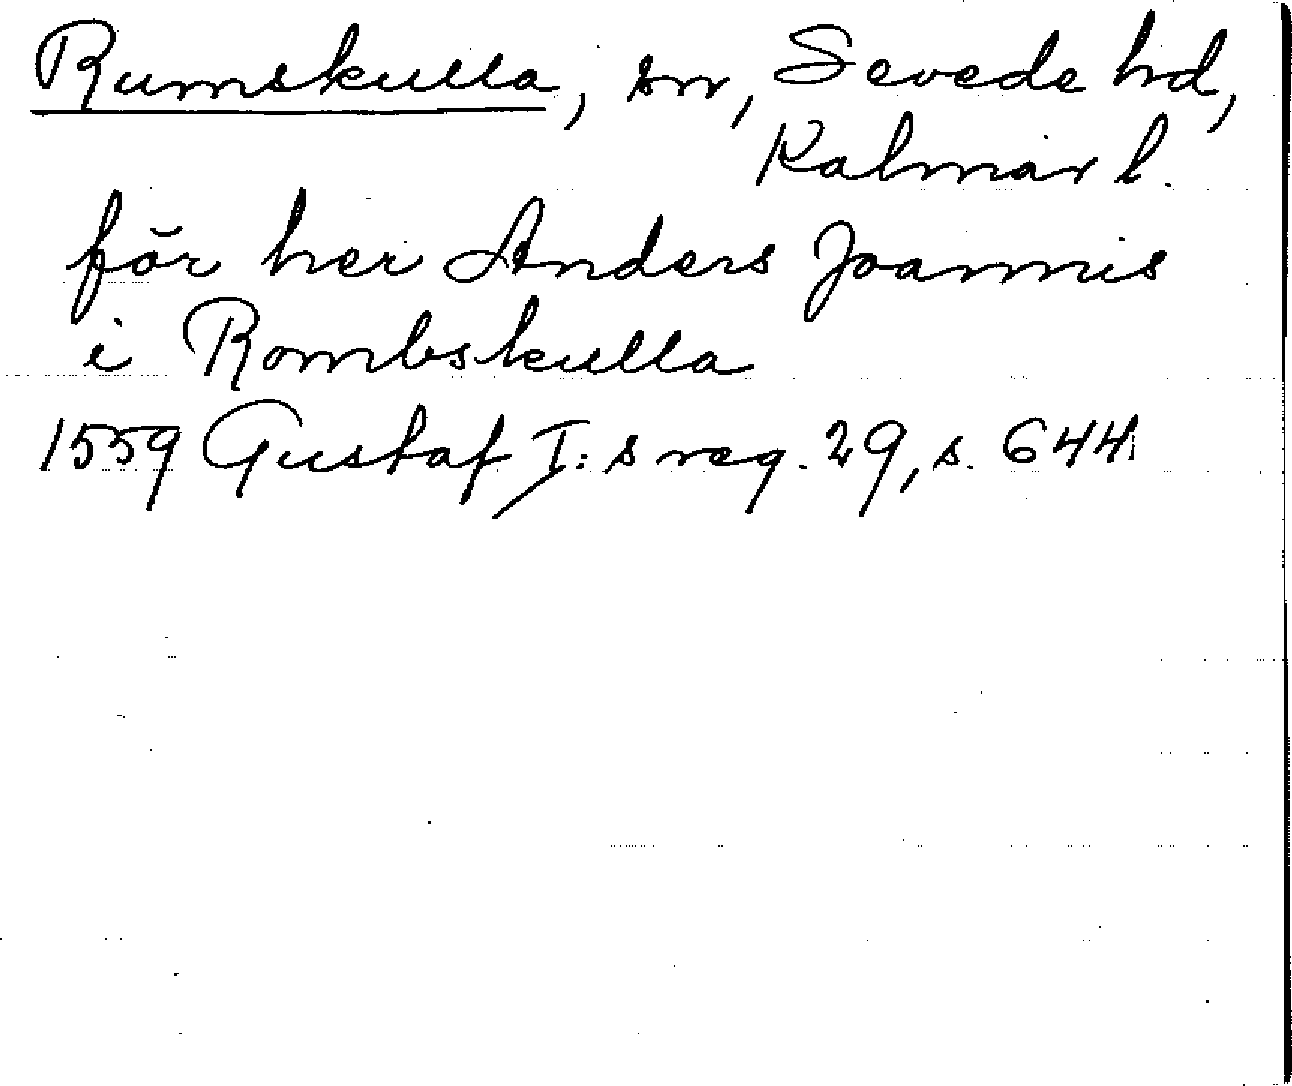 Rumskulla, sn, Sevede hd,
Kalmar l.
för her Anders Joannis
i Rombskulla
1559 Gustaf I:s reg. 29, s. 644